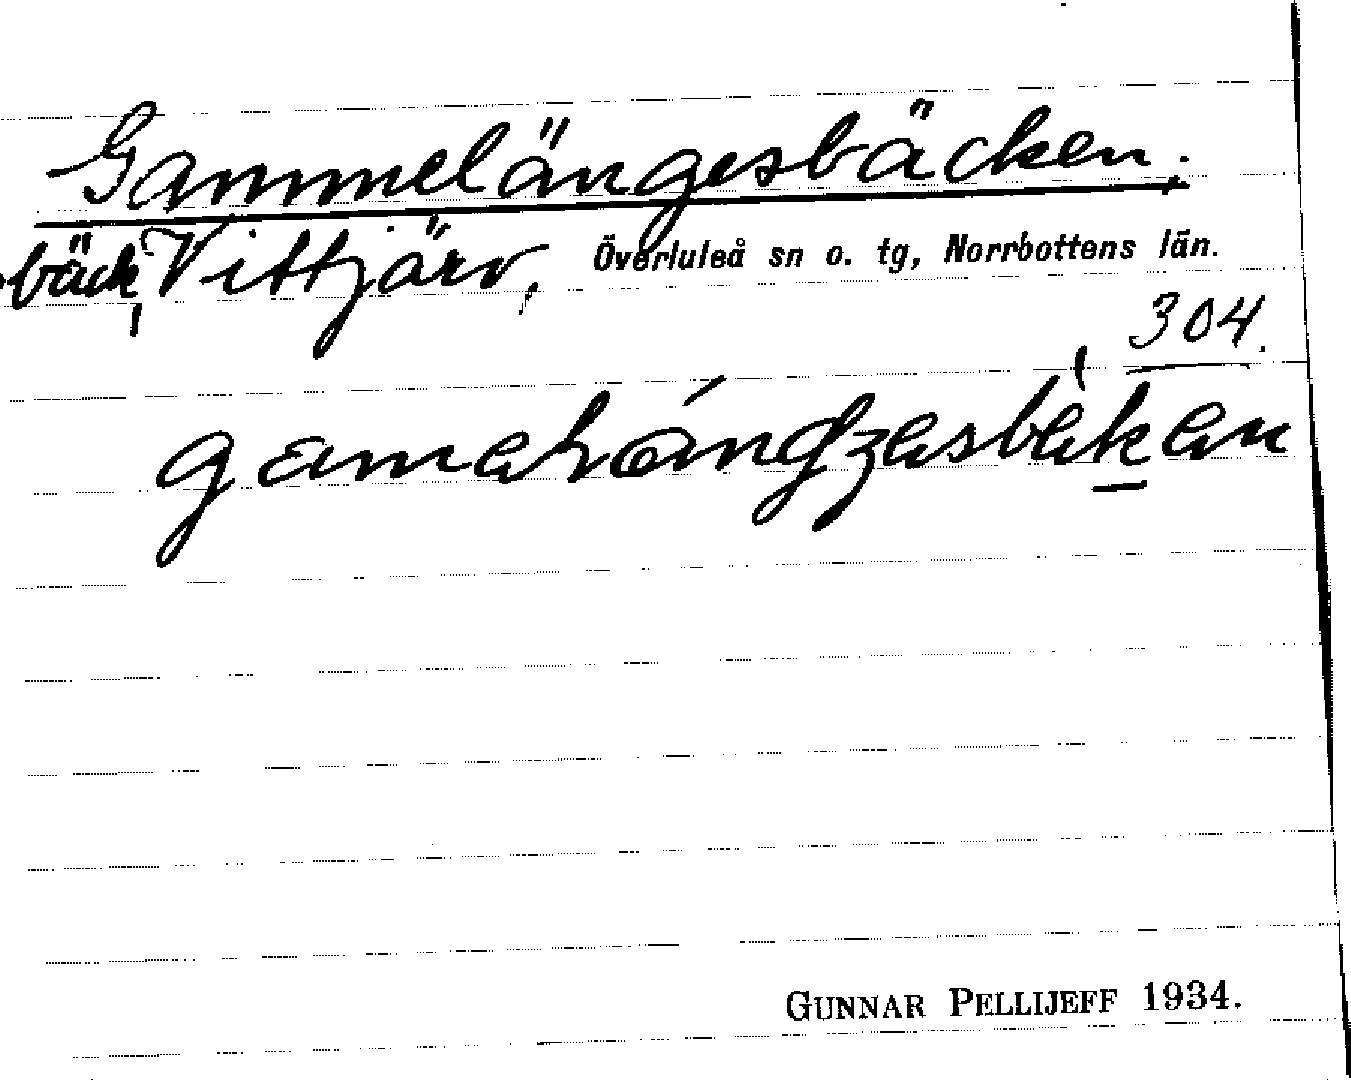 Gammelängesbäcken.
bäck, Vittjärv, Överluleå sn o. tg, Norrbottens län.
304.
GUNNAR PELLIJEFF 1934.